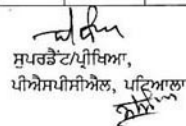 ਸੁਪਰਡੈਂਟ/ਪ੍ਰੀਖਿਆ,
ਪੀਐਸਪੀਸੀਐਲ, ਪਟਿਆਲਾ